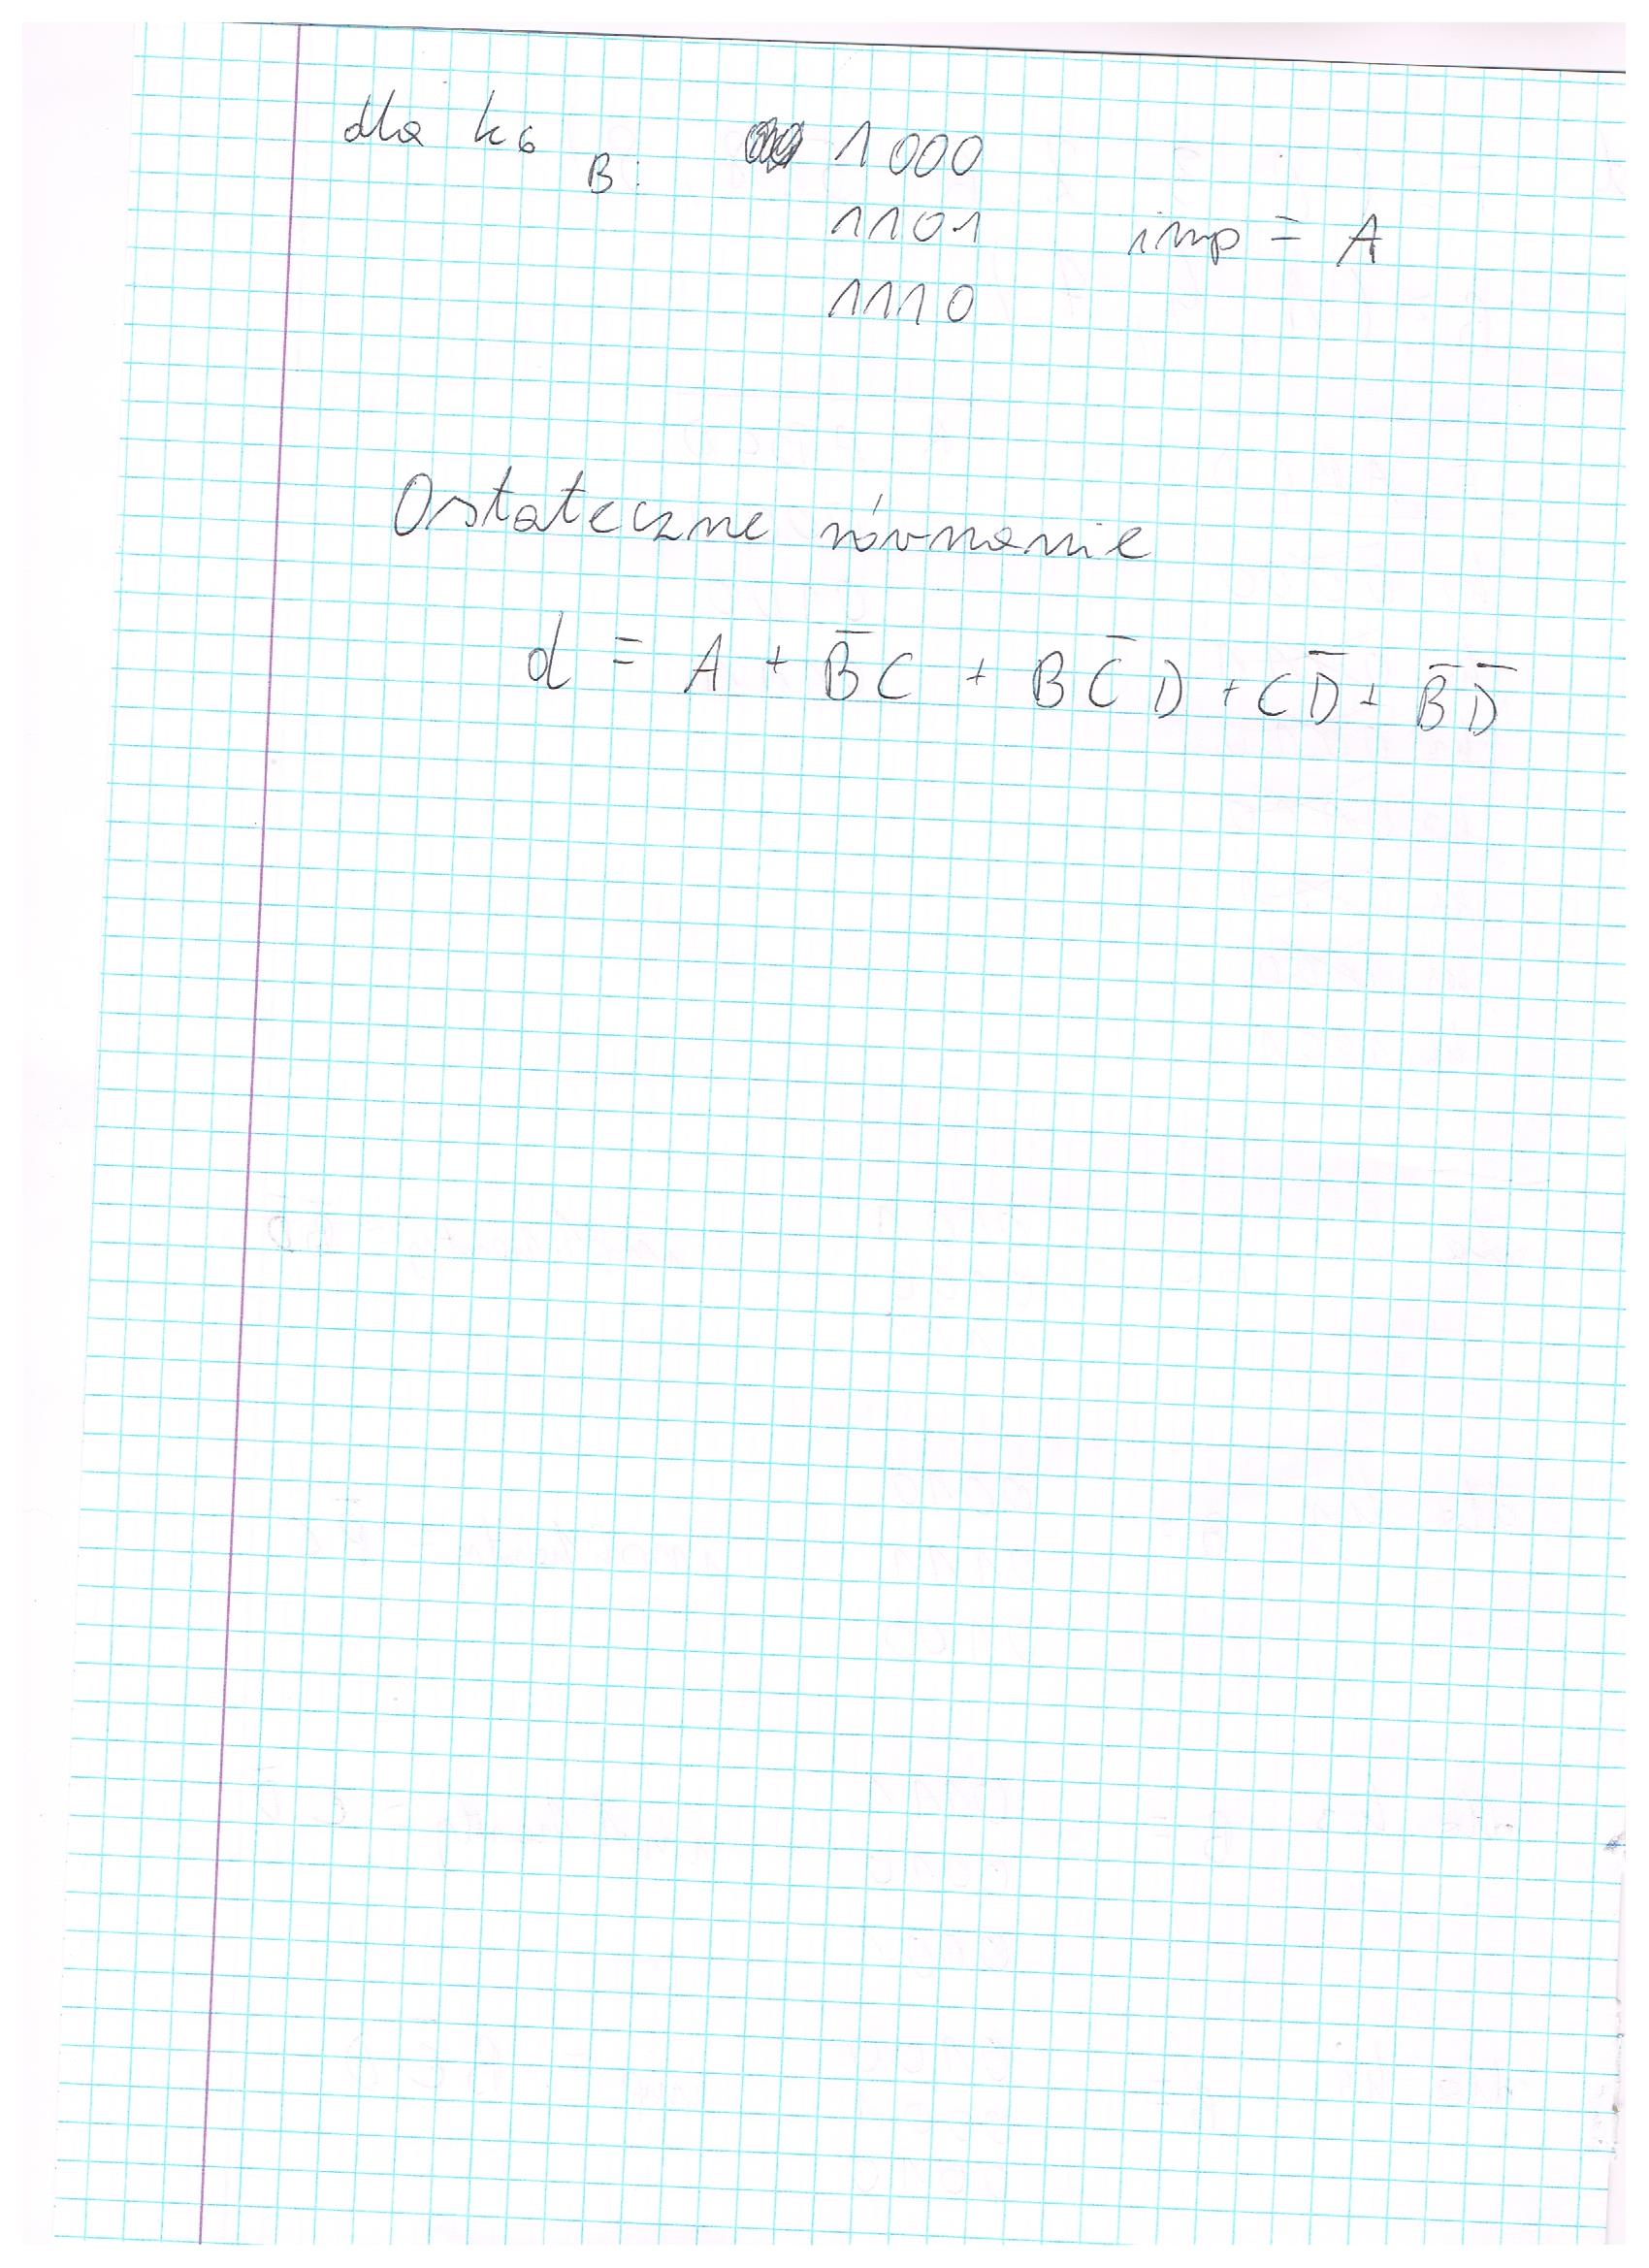 dla k6
B: 1000
1101 imp = A
1110
Ostateczne równanie
d = A + B̅C + BC̅D + CD̅ + B̅D̅